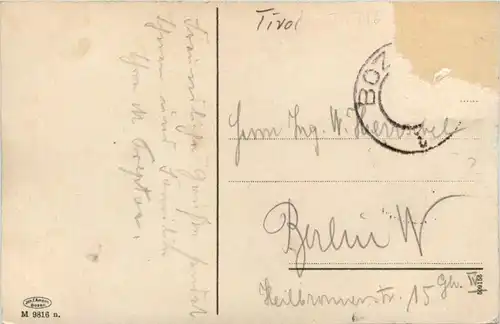 Tirol
BOZ
Freundliche Grüße sendet
Ihnen und Familie
Ihr M.
Herrn Ing. W.
Berlin W
Heilbronnerstr. 15 Gh. IV
M 9816 n.